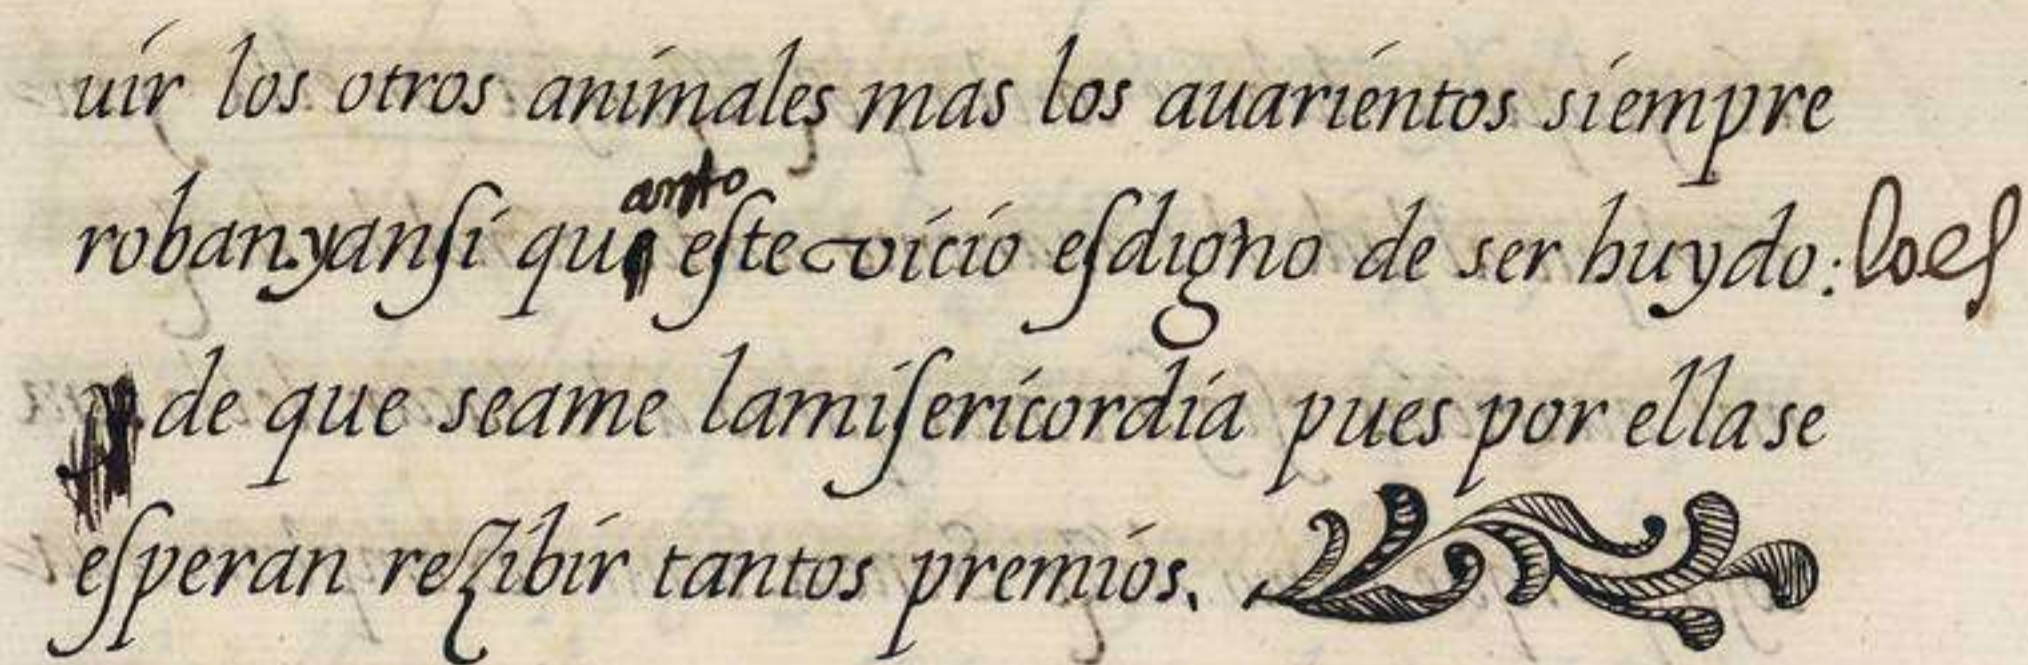 uir los otros animales mas los auarientos siempre
roban.yansi qu anto este vicio esdigno de ser huydo: loes
de que seame lamisericordia pues por ellase
esperan rezibir tantos premios.